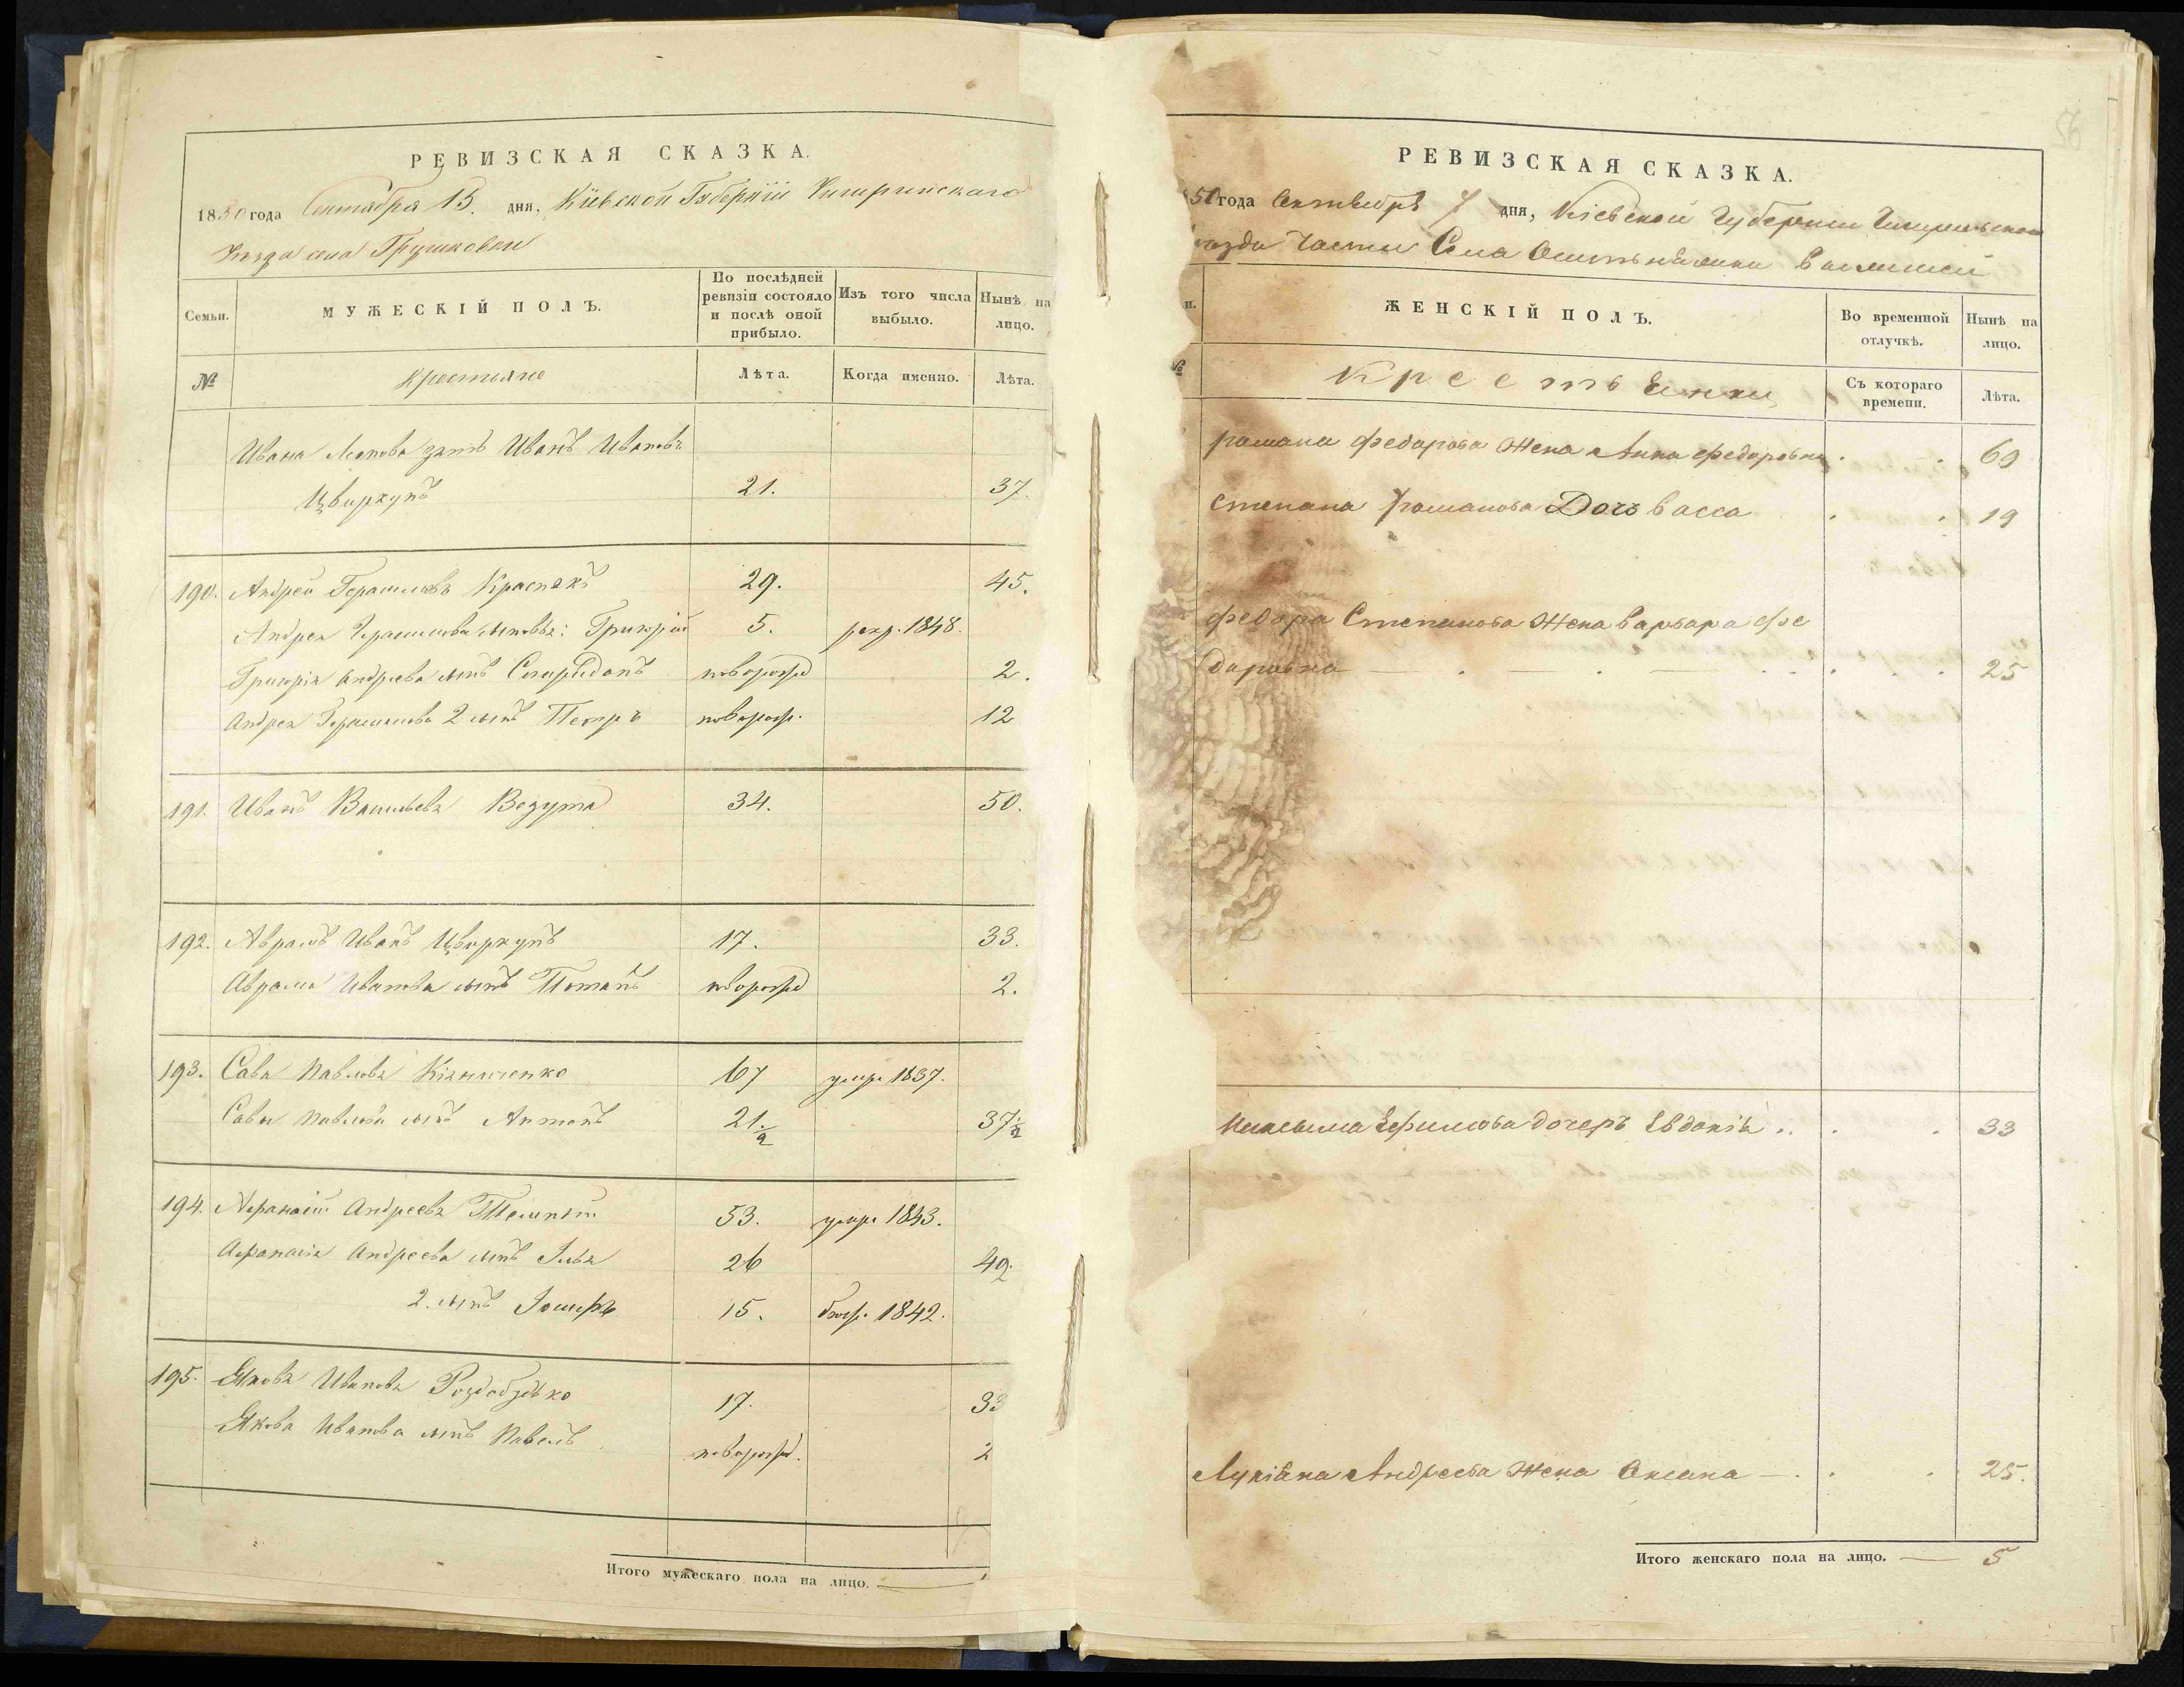 РЕВИЗСКАЯ СКАЗКА.
1850 года Сентября 15. дня, Кіевской Губерніи Чигиринскаго
Уѣзда села Грушковки
Семьи.
МУЖЕСКІЙ ПОЛЪ.
По послѣдней ревизіи состояло и послѣ оной прибыло.
Изъ того числа выбыло.
Нынѣ на лицо.
№
Крестьяне
Лѣта.
Когда именно.
Лѣта.
Ивана зять Иванъ Ивановъ
Цвиркунъ 21. 37.
190. Андрей Герасимовъ 29. 45.
Андрея Герасимова сыновья: Григорій 5. рекр. 1848.
Григорія Андреева сынъ Спиридонъ новорожд 2.
Андрея Герасимова 2 сынъ Петръ новорож. 12
191. Иванъ Васильевъ 34. 50.
192. Аврамъ Иванъ Цвиркунъ 17. 33.
Аврама Иванова сынъ Потапъ новорожд 2.
193. Сава Павловъ 67 умре 1837.
Савы Павлова сынъ Антонъ 21 1/2 37 1/2
194. Афанасій Андреевъ 53. умре 1843.
Афанасія Андреева сынъ Илья 26 42.
2. сынъ 15. 1842.
195. Яковъ Ивановъ Роздобудько 17. 33
Якова Иванова сынъ Павелъ новорожд. 2
Итого мужескаго пола на лицо.
РЕВИЗСКАЯ СКАЗКА.
50 года Октября 7 дня, Кіевской Губерніи Чигиринской
уезда части Села
н.
ЖЕНСКІЙ ПОЛЪ.
Во временной отлучкѣ.
Нынѣ на лицо.
№
Крестьянки
Съ котораго времени.
Лѣта.
романа федорова Жена Анна федоровна 69
степана романова Дочь васса 19
федора Степанова Жена варвара фе
доровна 25
Ефимова дочерь Евдокія 33
Лукіана Андреева Жена Оксана 25.
Итого женскаго пола на лицо. 5